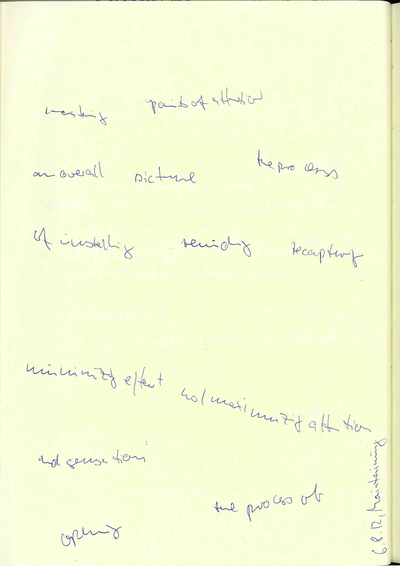 points of attention
an overall picture the process
of installing reminding recapturing
minimizing effort and/maximizing attention
and sensation
the process of
opening
6.8.12, Maintaining